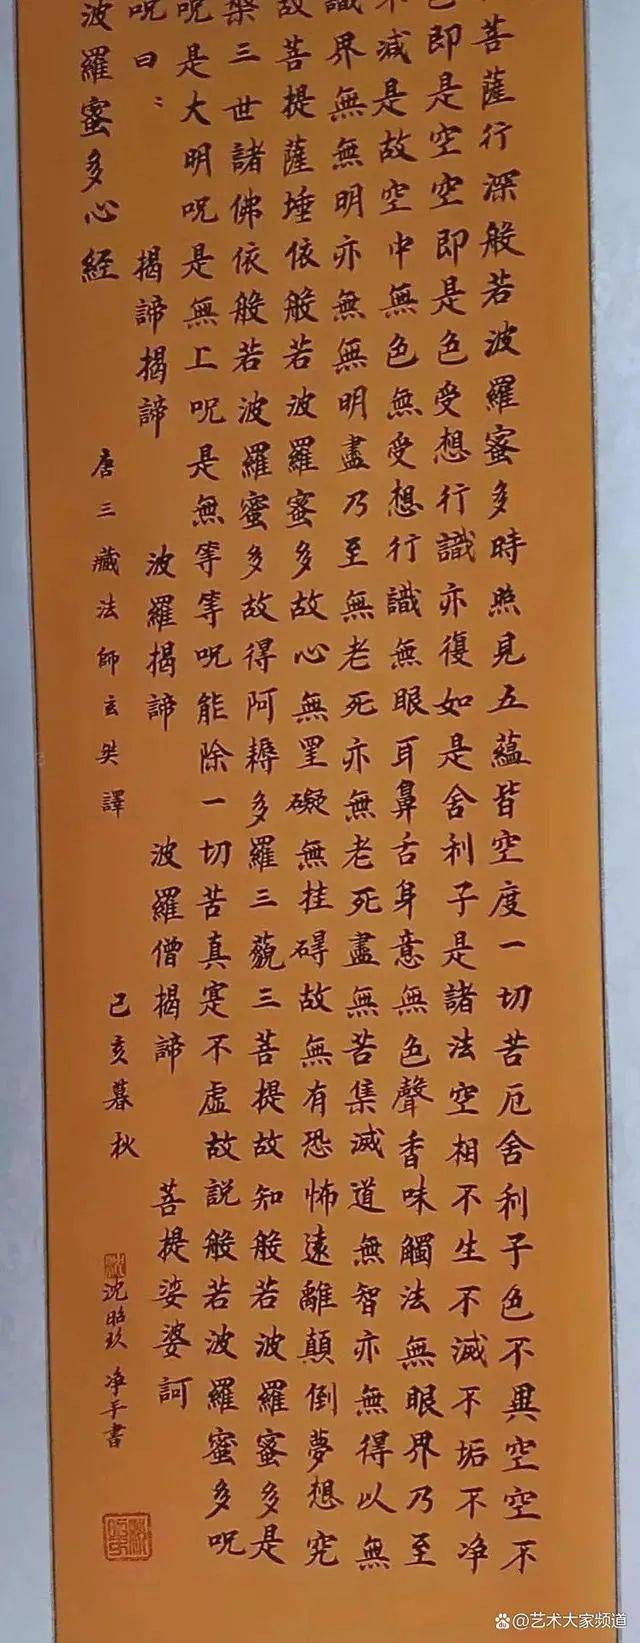 菩薩行深般若波羅蜜多時照見五蘊皆空度一切苦厄舍利子色不異空空不
色即是空空即是色受想行識亦復如是舍利子是諸法空相不生不滅不垢不净
不減是故空中無色無受想行識無眼耳鼻舌身意無色聲香味觸法無眼界乃至
識界無無明亦無無明盡乃至無老死亦無老死盡無苦集滅道無智亦無得以無
故菩提薩埵依般若波羅蜜多故心無罣礙無挂碍故無有恐怖遠離顛倒夢想究
槃三世諸佛依般若波羅蜜多故得阿耨多羅三藐三菩提故知般若波羅蜜多是
呪是大明呪是無上呪是無等等呪能除一切苦真寔不虛故説般若波羅蜜多呪
呪曰： 揭諦揭諦 波羅揭諦 波羅僧揭諦 菩提娑婆訶
波羅蜜多心經 唐三藏法師玄奘譯 己亥暮秋 沈昭玖净手書
@艺术大家频道